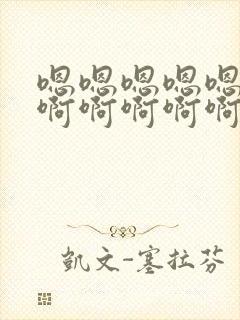 嗯嗯嗯嗯嗯
啊啊啊啊啊
凱文-塞拉芬